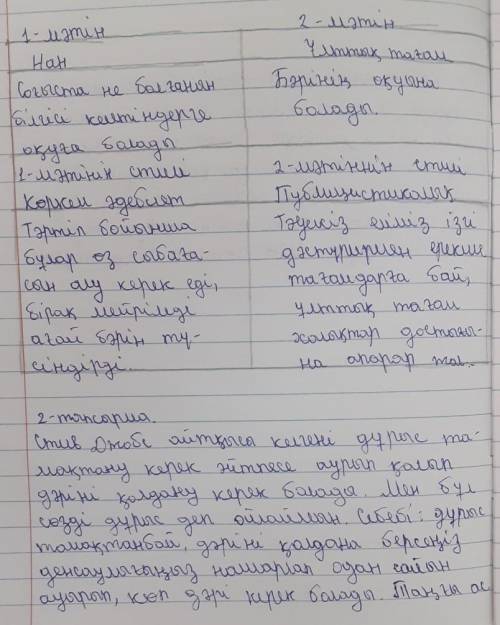 1-мәтін
Нан
Соғыста не болғанын
білгісі келгіндерге
оқуға болады
1-мәтінің стилі
Көркем әдебиет
Тәртіп бойынша
бұлар өз сыбаға-
сын алу керек еді,
бірақ мейрімді
ағай бәрін тү-
сіндірді.
2-мәтін
Ұлттық тағам
Бәрінің оқуына
болады.
2-мәтіннің стилі
Публицистикалық
Тәуекіз еліміз ізгі
дәстүрирмен ерекше
тағамдарға бай,
ұлттық тағам
халықтар достығы-
на апарар жол.
2-тапсырма.
Стив Джобс айтқысы келгені дұрыс та-
мақтану керек әйтпесе ауырып қалып
дәріні қолдану керек болады. Мен бұл
сөзді дұрыс деп ойлаймын. Себебі: дұрыс
тамақтанбай, дәріні қолдана берсеңіз
денсаулығыңыз нашарлап одан сайын
ауырып, көп дәрі керек болады. Таңғы ас